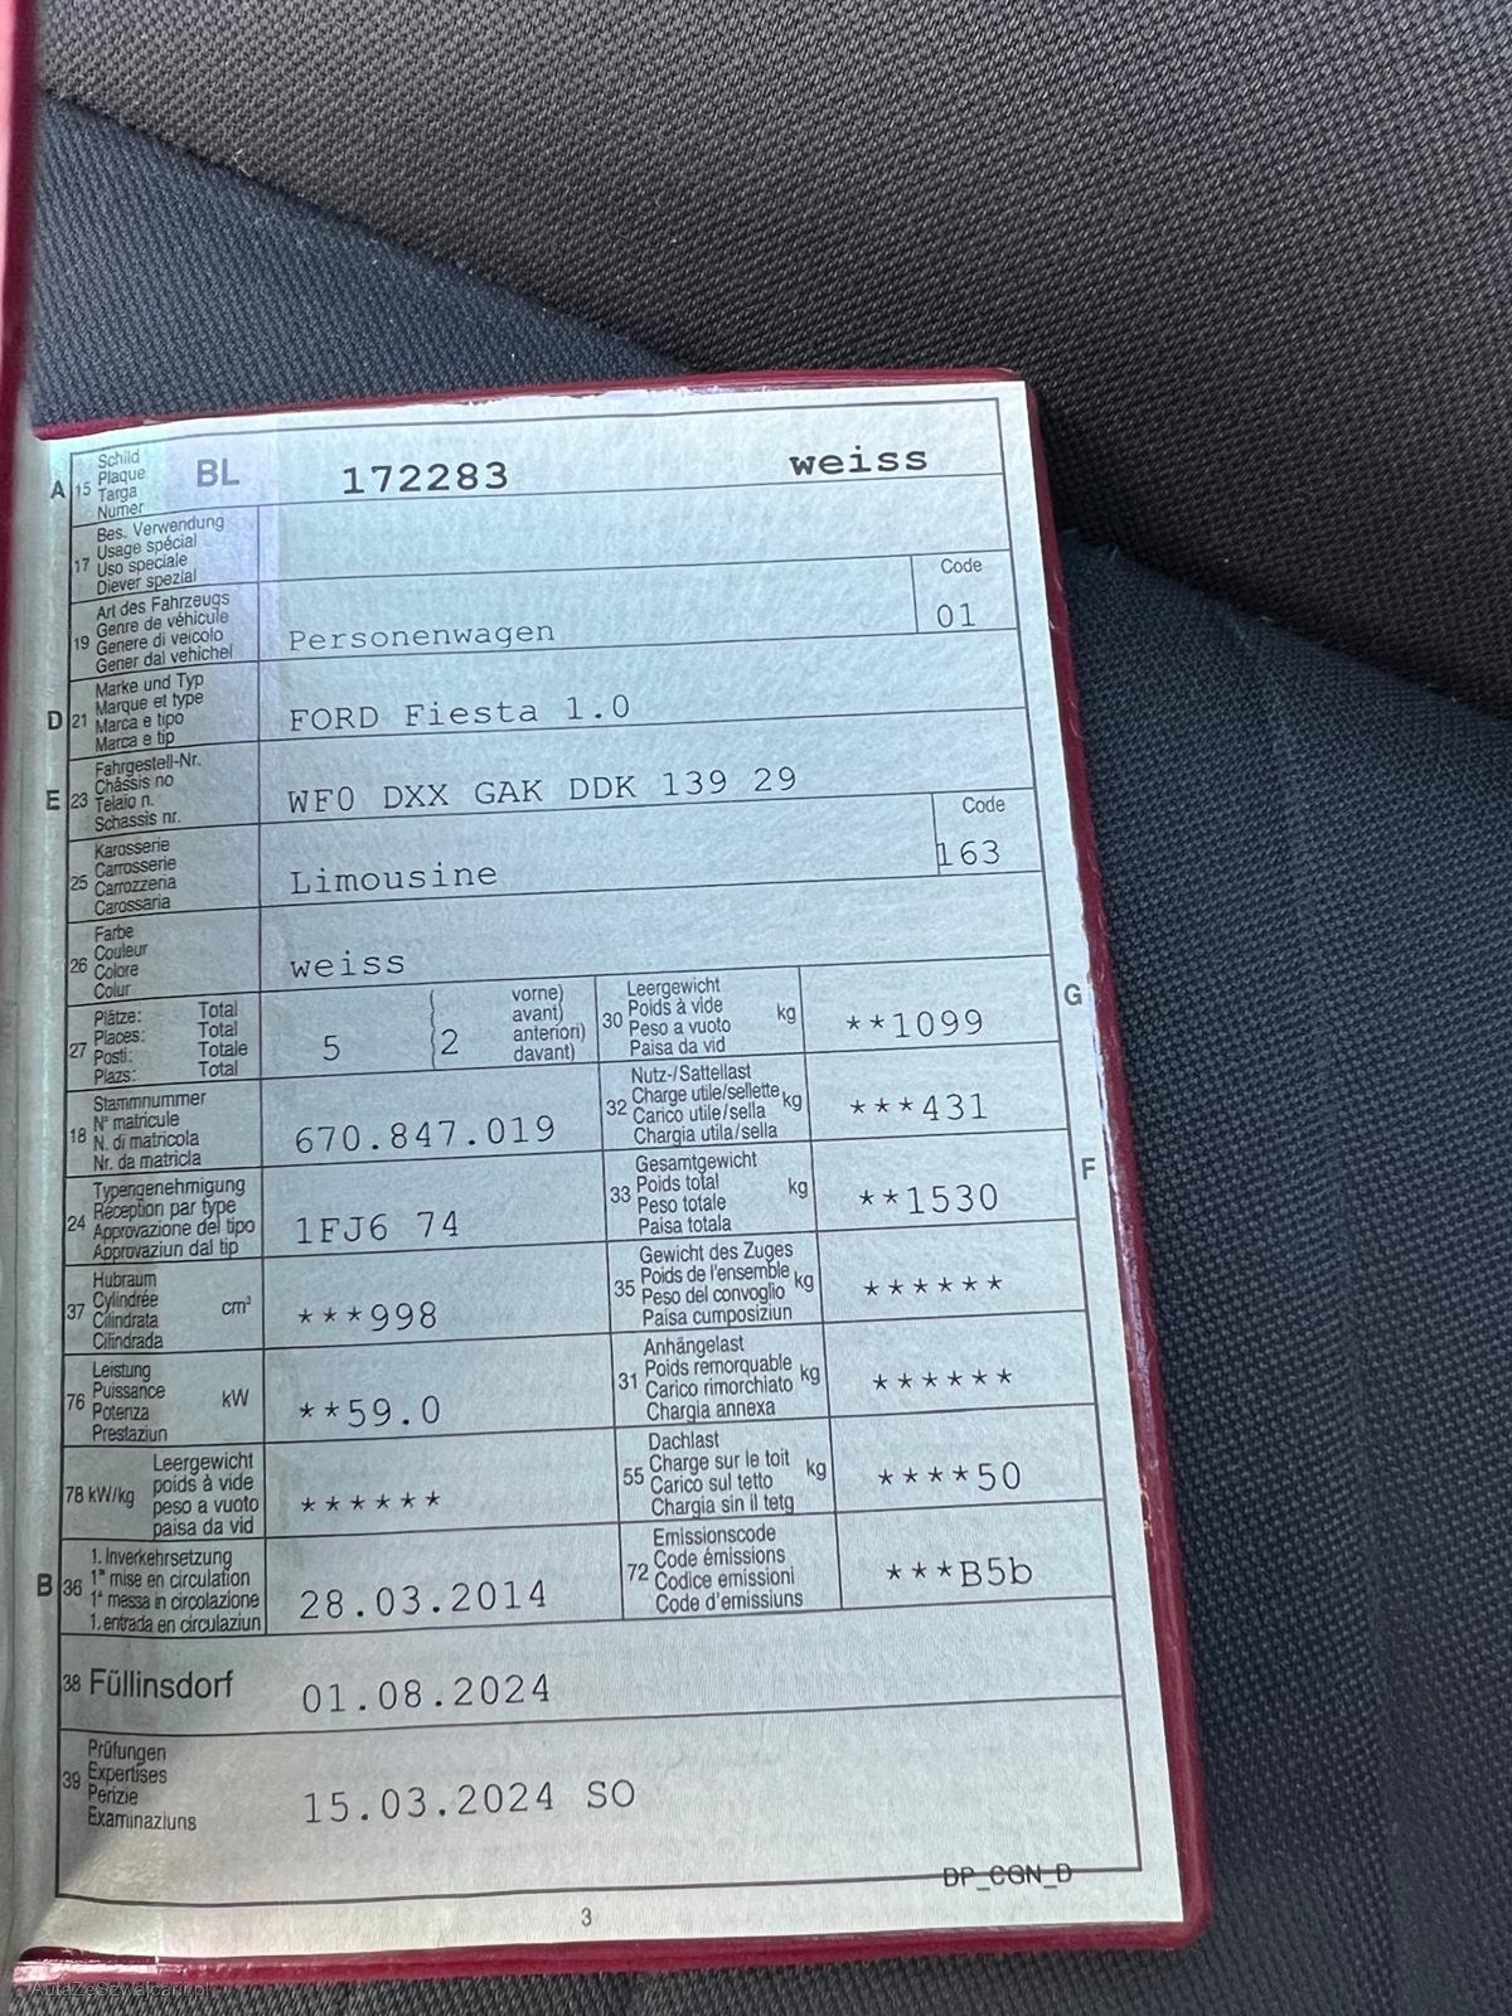 A 15 Schild Plaque Targa Numer BL 172283 weiss
17 Bes. Verwendung Usage spécial Uso speciale Diever spezial
19 Art des Fahrzeugs Genre de véhicule Genere di veicolo Gener dal vehichel Personenwagen Code 01
D 21 Marke und Typ Marque et type Marca e tipo Marca e tip FORD Fiesta 1.0
E 23 Fahrgestell-Nr. Châssis no Telaio n. Schassis nr. WF0 DXX GAK DDK 139 29
25 Karosserie Carrosserie Carrozzeria Carossaria Limousine Code 163
26 Farbe Couleur Colore Colur weiss
27 Plätze: Total Places: Total Posti: Totale Plazs: Total 5 (2 vorne) avant) anteriori) davant)
30 Leergewicht Poids à vide Peso a vuoto Paisa da vid kg **1099 G
18 Stammnummer N° matricule N. di matricola Nr. da matricla 670.847.019
32 Nutz-/Sattellast Charge utile/sellette Carico utile/sella Chargia utila/sella kg ***431
24 Typengenehmigung Réception par type Approvazione del tipo Approvaziun dal tip 1FJ6 74
33 Gesamtgewicht Poids total Peso totale Paisa totala kg **1530 F
37 Hubraum Cylindrée Cilindrata Cilindrada cm³ ***998
35 Gewicht des Zuges Poids de l'ensemble Peso del convoglio Paisa cumposiziun kg ******
76 Leistung Puissance Potenza Prestaziun kW **59.0
31 Anhängelast Poids remorquable Carico rimorchiato Chargia annexa kg ******
78 kW/kg Leergewicht poids à vide peso a vuoto paisa da vid ******
55 Dachlast Charge sur le toit Carico sul tetto Chargia sin il tetg kg ****50
B 36 1. Inverkehrsetzung 1re mise en circulation 1a messa in circolazione 1. entrada en circulaziun 28.03.2014
72 Emissionscode Code émissions Codice emissioni Code d'emissiuns ***B5b
38 Füllinsdorf 01.08.2024
39 Prüfungen Expertises Perizie Examinaziuns 15.03.2024 SO
DP_CGN_D
3
AutaZeSzwajcarii.pl